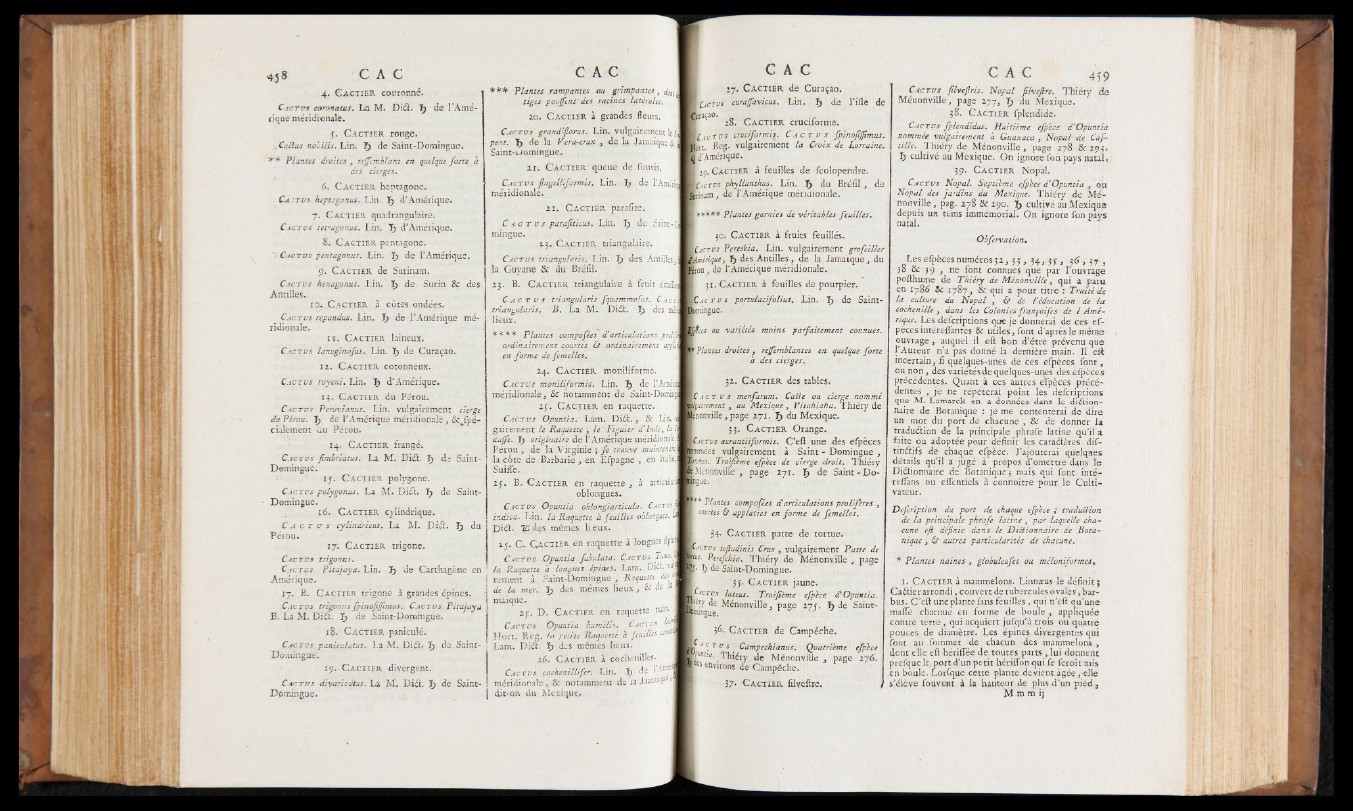 458 CAC
4. CACTIER couronné.
CACTUS coronatus. La M. Dict. ♄ de l'Amé-
rique méridionale.
5. CACTIER rouge.
Cactus nobilis. Lin. ♄ de Saint-Domingue.
** Plantes droites, reſſemblant en quelque ſorte à
des cierges.
6. CACTIER heptagone.
CACTUS heptagonus. Lin. ♄ d'Amérique.
7. CACTIER quadrangulaire.
CACTUS tetragonus. Lin. ♄ d'Amérique.
8. CACTIER pentagone.
CACTUS pentagonus. Lin. ♄ de l'Amérique.
9. CACTIER de Surinam.
CACTUS hexagonus. Lin. ♄ de Surin & des
Antilles.
10. CACTIER à côtes ondées.
CACTUS repandus. Lin. ♄ de l'Amérique mé-
ridionale.
11. CACTIER laineux.
CACTUS lanuginoſus. Lin. ♄ de Curaçao.
12. CACTIER cotonneux.
CACTUS royeni. Lin. ♄ d'Amérique.
13. CACTIER du Pérou.
CACTUS Peruvianus. Lin. vulgairement cierge
du Pérou. ♄ de l'Amérique méridionale, & ſpé-
cialement du Pérou.
14. CACTIER frangé.
CACTUS fimbriatus. La M. Dict. ♄ de Saint-
Domingue.
15. CACTIER polygone.
CACTUS polygonus. La M. Dict. ♄ de Saint-
Domingue.
16. CACTIER cylindrique.
CACTUS cylindricus. La M. Dict. ♄ du
Pérou.
17. CACTIER trigone.
CACTUS trigonus.
CACTUS Pitajaya. Lin. ♄ de Carthagène en
Amérique.
17. B. CACTIER trigone à grandes épines.
CACTUS trigonus ſpinoſiſſimus. CACTUS Pitajaya
B. La M. Dict. ♄ de Saint-Domingue.
18. CACTIER paniculé.
CACTUS paniculatus. La M. Dict. ♄ de Saint-
Domingue.
19. CACTIER divergent.
CACTUS divaricatus. La M. Dict. ♄ de Saint-
Domingue.
CAC
*** Plantes rampantes ou grimpantes,
tiges pouſſent des racines latérales.
20. CACTIER à grandes fleurs.
CACTUS grandiflorus. Lin. vulgairement le
pent. ♄ de la Vera-crux, de la Jamaïque &
Saint-Domingue.
21. CACTIER queue de ſouris.
CACTUS flagelliformis. Lin. ♄ de l'Amérique
méridionale.
22. CACTIER paraſite.
CACTUS paraſiticus. Lin. ♄ de Saint-
mingue.
23. CACTIER triangulaire.
CACTUS triangularis. Lin. ♄ des Antilles,
la Guyane & du Bréſil.
23. B. CACTIER triangulaire à fruit
CACTUS triangularis ſquammoſus.
triangularis. B. La M. Dict. ♄ des
lieux.
**** Plantes compoſées d'articulations
ordinairement courtes & ordinairement
en forme de ſemelles.
24. CACTIER moniliforme.
CACTUS moniliformis. Lin. ♄ de l'Amérique
méridionale, & notamment de Saint-Domingue
25. CACTIER en raquette.
CACTUS Opuntia. Lam. Dict., & Lin.
gairement le Raquette, le Figuier d'Inde,
♄ originaire de l'Amérique méridionale,
Pérou, de la Virginie; ſe trouve maintenant
la côte de Barbarie, en Eſpagne, en Italie,
Suiſſe.
25. B. CACTIER en raquette, à
oblongues.
CACTUS Opuntia oblongiarticula.
indica. Lin. la Raquette à feuilles oblongues.
Dict. des mêmes lieux.
25. C. CACTIER en raquette à longues
CACTUS Opuntia ſubulata.
la Raquette à longues épines. Lam. Dict.
rement à Saint-Domingue, Raquette
de la mer. ♄ des mêmes lieux, & de la
maïque.
25. D. CACTIER en raquette
CACTUS Opuntia humilis.
Hort. Reg. la petite Raquette à feuilles
Lam. Dict. ♄ des mêmes lieux.
26. CACTIER à cochenilles.
CACTUS cochenillifer. Lin. ♄ de
méridionale, & notamment de la Jamaïque,
dit-on du Mexique.
CAC
27. CACTIER de Curaçao.
CACTUS curaſſavicus. Lin. ♄ de l'iſle de
Curaçao.
28. CACTIER cruciforme.
CACTUS cruciformis. CACTUS ſpinoſiſſimus.
Hort. Reg. vulgairement la Croix de Lorraine.
d'Amérique.
29. CACTIER à feuilles de ſcolopendre.
CACTUS phyllanthus. Lin. ♄ du Bréſil, de
Surinam, de l'Amérique méridionale.
***** Plantes garnies de véritables feuilles.
30. CACTIER à fruits feuillés.
CACTUS Pereskia. Lin. vulgairement groſeiller
d'Amérique, ♄ des Antilles, de la Jamaïque, du
Pérou, de l'Amérique méridionale.
31. CACTIER à feuilles de pourpier.
CACTUS portulacifolius. Lin. ♄ de Saint-
Domingue.
Eſpèces ou variétés moins parfaitement connues.
** Plantes droites, reſſemblantes en quelque ſorte
à des cierges.
32. CACTIER des tables.
CACTUS menſarum. Caſſe ou cierge nommé
vulgairement, au Mexique, Pitahiaha. Thiéry de
Ménonville, page 271. ♄ du Mexique.
33. CACTIER Orange.
CACTUS aurantiiformis. C'eſt une des eſpèces
nommées vulgairement à Saint-Domingue,
Torches. Troiſième eſpèce de cierge droit. Thiéry
de Ménonville, page 271. ♄ de Saint-Do-
mingue.
**** Plantes compoſées d'articulations prolifères,
courtes & applaties en forme de ſemelles.
34. CACTIER patte de tortue.
CACTUS teſtudinis Crus, vulgairement Patte de
Pereſchie. Thiéry de Ménonville, page
275. ♄ de Saint-Domingue.
35. CACTIER jaune.
CACTUS luteus. Troiſième eſpèce d'Opuntia.
Thiéry de Ménonville, page 275. ♄ de Saint-
Domingue.
36. CACTIER de Campêche.
CACTUS Campechianus. Quatrième eſpèce
d'Opuntia. Thiéry de Ménonville, page 276.
♄ des environs de Campêche.
37. CACTIER ſilveſtre.
CAC 459
CACTUS ſilveſtris. Nopal ſilveſtre. Thiéry de
Ménonville, page 277, ♄ du Mexique.
38. CACTIER ſplendide.
CACTUS ſplendidus. Huitième eſpèce d'Opuntia
nommée vulgairement à Guaxaca, Nopal de Caſ-
tille. Thiéry de Ménonville, page 278 & 295.
♄ cultivé au Mexique. On ignore ſon pays natal.
39. CACTIER Nopal.
CACTUS Nopal. Septième eſpèce d'Opuntia, ou
Nopal des jardins du Mexique. Thiéry de Mé-
nonville, pag. 278 & 290. ♄ cultivé au Mexique
depuis un tems immémorial. On ignore ſon pays
natal.
Obſervation.
Les eſpèces numéros 32, 33, 34, 35, 36, 37,
38 & 39, ne ſont connues que par l'ouvrage
poſthume de Thiéry de Ménonville, qui a paru
en 1786 & 1787, & qui a pour titre: Traité de
la culture du Nopal, & de l'éducation de la
cochenille, dans les Colonies françoiſes de l'Amé-
rique. Les deſcriptions que je donnerai de ces eſ-
pèces intéreſſantes & utiles, ſont d'après le même
ouvrage, auquel il eſt bon d'être prévenu que
l'Auteur n'a pas donné la dernière main. Il eſt
incertain, ſi quelques-unes de ces eſpèces ſont,
ou non, des variétés de quelques-unes des eſpèces
précédentes. Quant à ces autres eſpèces précé-
dentes, je ne répéterai point les deſcriptions
que M. Lamarck en a données dans le diction-
naire de Botanique: je me contenterai de dire
un mot du port de chacune, & de donner la
traduction de la principale phraſe latine qu'il a
faite ou adoptée pour définir les caractères diſ-
tinctifs de chaque eſpèce. J'ajouterai quelques
détails qu'il a jugé à propos d'omettre dans le
Dictionnaire de Botanique; mais qui ſont inté-
reſſans ou eſſentiels à connoître pour le Culti-
vateur.
Deſcription du port de chaque eſpèce; traduction
de la principale phraſe latine, par laquelle cha-
cune eſt définie dans le Dictionnaire de Bota-
nique, & autres particularités de chacune.
* Plantes naines, globuleuſes ou méloniformes.
1. CACTIER à mammelons. Linnæus le définit;
Cactier arrondi, couvert de tubercules ovales, bar-
bus. C'eſt une plante ſans feuilles, qui n'eſt qu'une
maſſe charnue en forme de boule, appliquée
contre terre, qui acquiert juſqu'à trois ou quatre
pouces de diamètre. Les épines divergentes qui
ſont au ſommet de chacun des mammelons,
dont elle eſt hériſſée de toutes parts, lui donnent
preſque le port d'un petit hériſſon qui ſe ſeroit mis
en boule. Lorſque cette plante devient âgée, elle
s'élève ſouvent à la hauteur de plus d'un pied,
Mmm ij